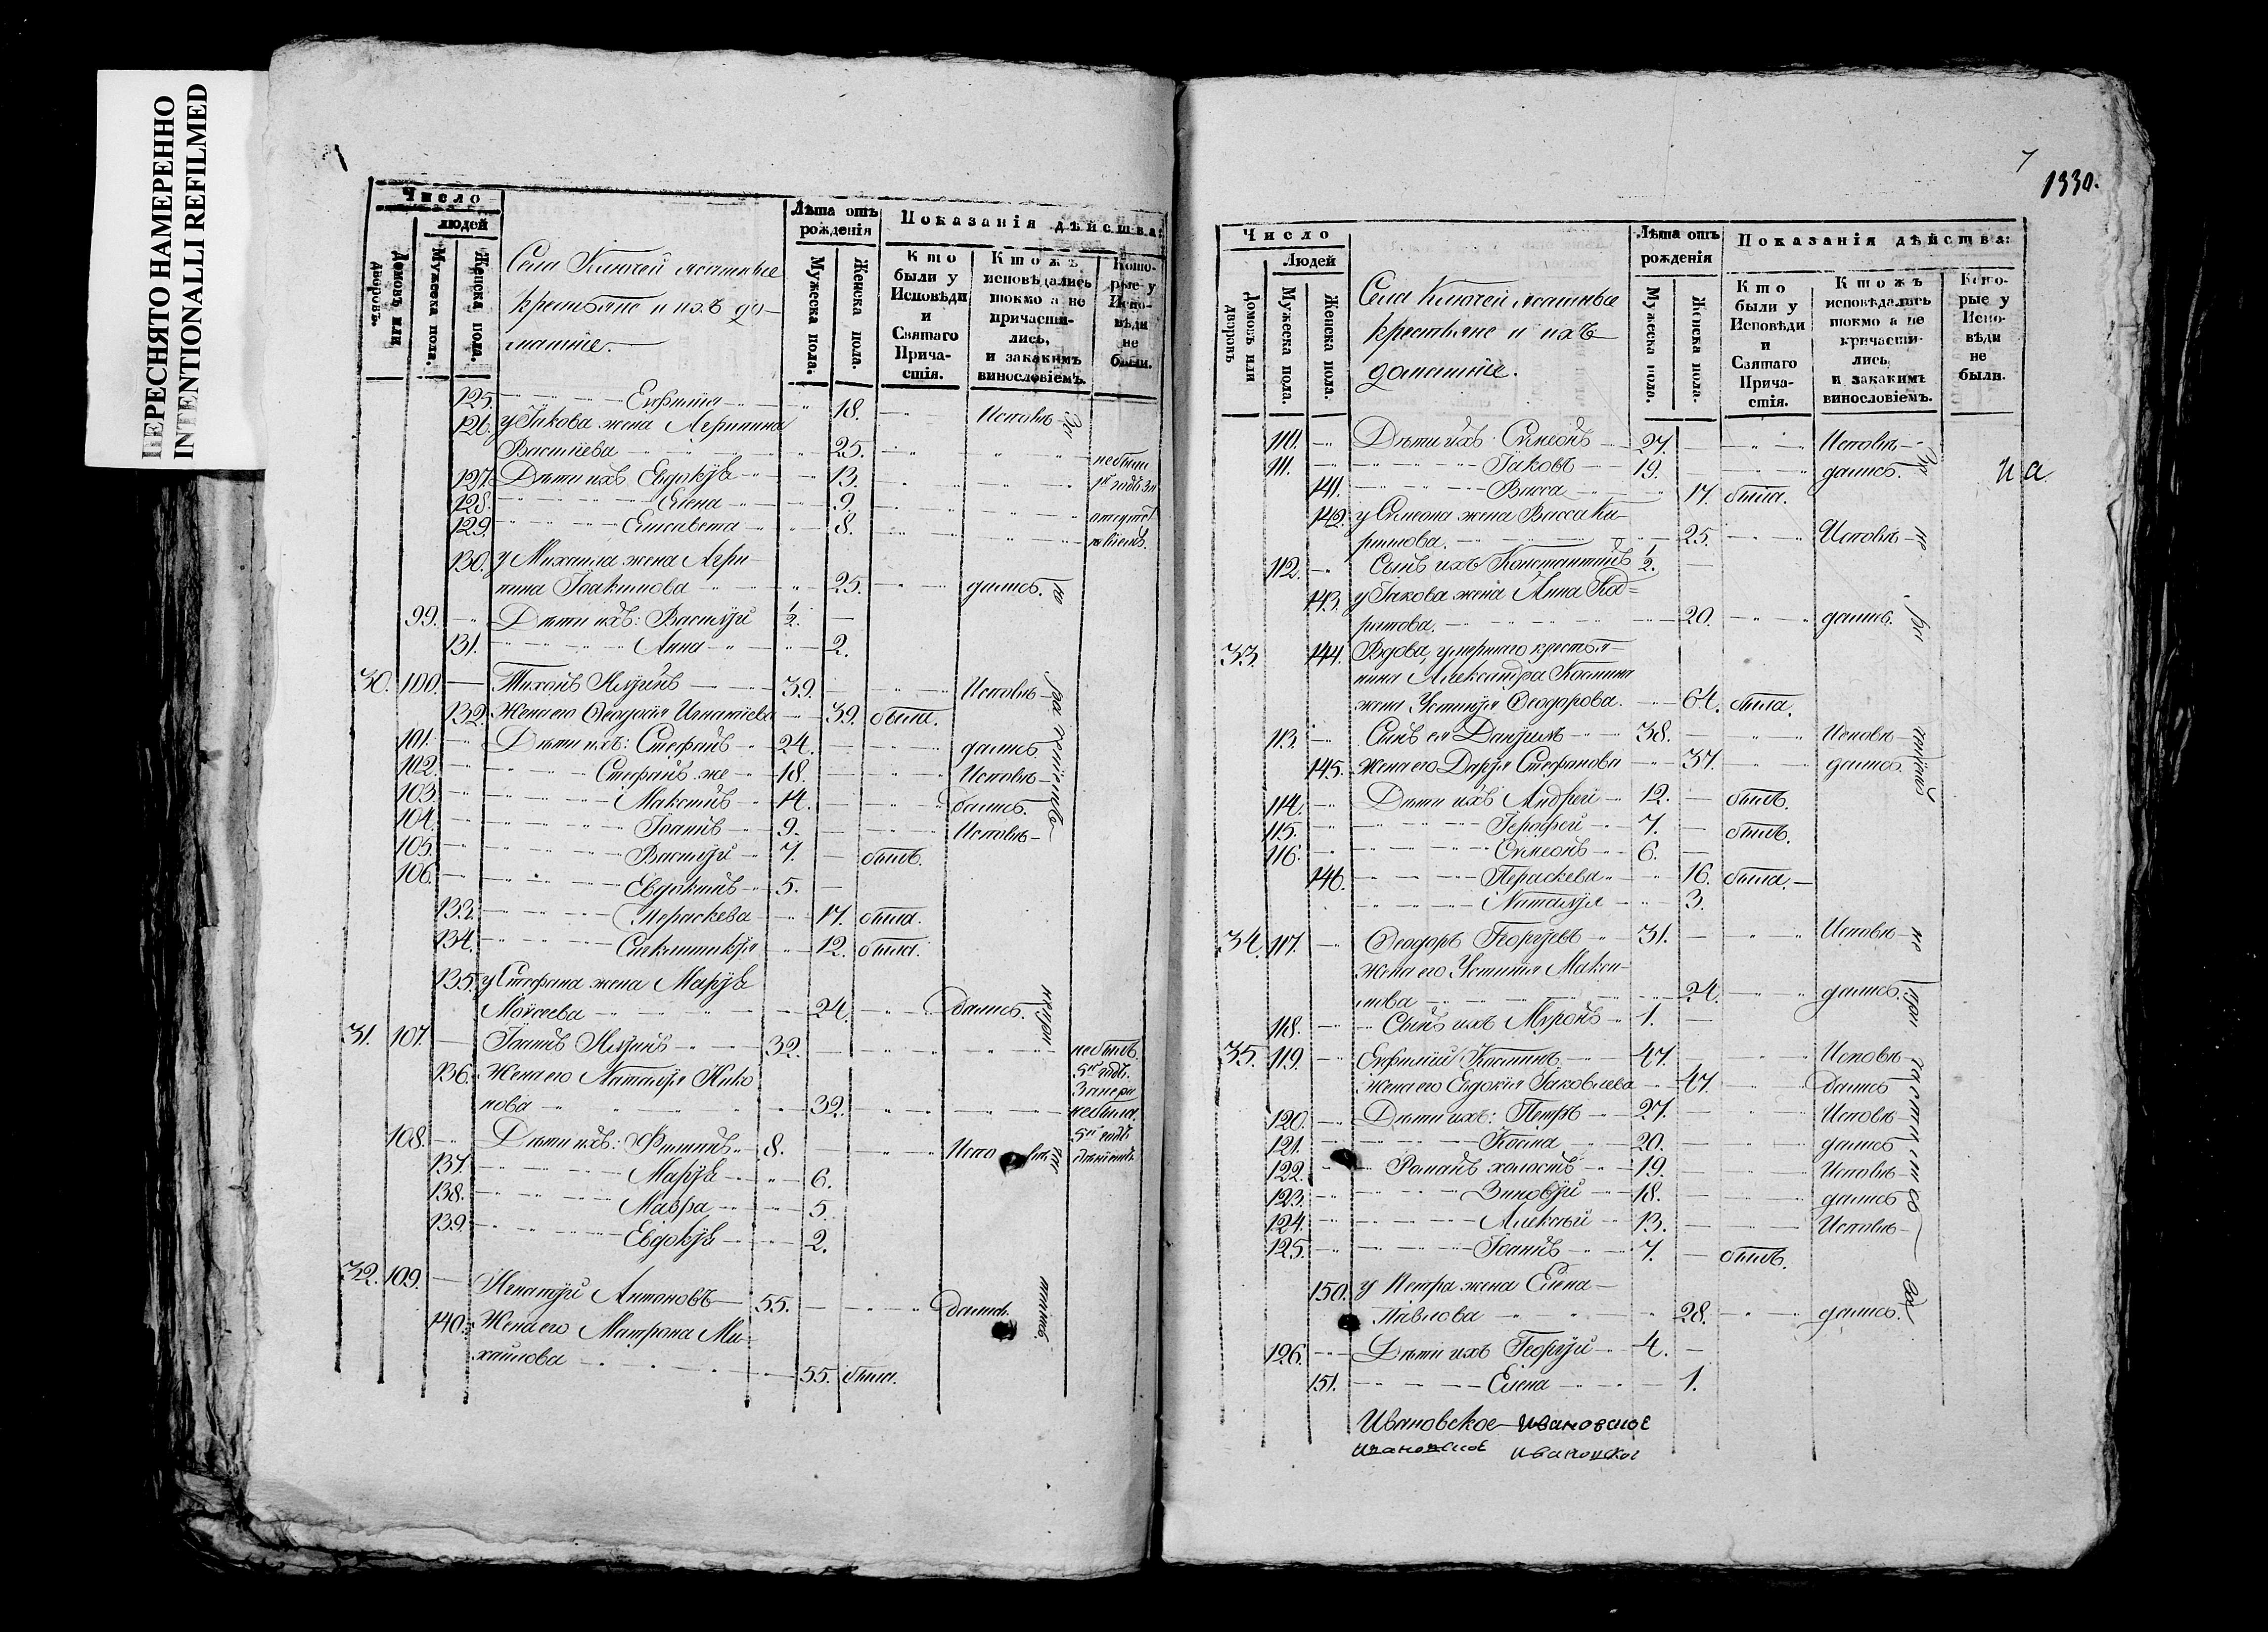 ПЕРЕСНЯТО НАМЕРЕННО
INTENTIONALLI REFILMED
Число
людей
Домовъ или дворовъ.
Мужеска пола.
Женска пола.
Села Ключей
крестьяне и ихъ до-
Лѣта отъ рожденія
Мужеска пола.
Женска пола.
Показанія дѣйства:
Кто были у Исповѣди и Святаго Причастія.
Кто жъ исповѣдались токмо а не причастились, и закакимъ винословіемъ.
Которые у Исповѣди не были.
125. Евфимія 18. Исповѣ-
126. у Іакова жена Агрипина
25.
127. Дѣти ихъ Евдокія 13.
128. Елена 9.
129. Елисавета 8.
130. у Михаила жена Агри-
пина Іоакимова 25. дались.
99. Дѣти ихъ: Василій ½.
131. Анна 2.
30. 100. Тихонъ 39. Исповѣ-
132. Жена его Ѳеодосія Игнатіева 39. была.
101. Дѣти ихъ: Стефанъ 24. дались
102. Стефанъ же 18. Исповѣ-
103. Максимъ 14. дались.
104. Іоаннъ 9. Исповѣ-
105. Василій 7. былъ.
106. Евдокимъ 5.
133. Пераскева 17. была.
134. 12. была.
135. у Стефана жена Марія
Моисеева 24. дались.
31. 107. Іоаннъ 32. небылъ
136. Жена его Наталія Нико
нова 32. небыла
108. Дѣти ихъ: Филиппъ 8. Испо
137. Марія 6.
138. Мавра 5.
139. Евдокія 2.
32. 109. Антоновъ 55. дались.
140. Жена его Матрона Ми-
хаилова 55. была.
1330.
Число
Людей
Домовъ или дворовъ
Мужеска пола.
Женска пола.
Села Ключей
крестьяне и ихъ
Лѣта отъ рожденія
Мужеска пола.
Женска пола.
Показанія дѣйства:
Кто были у Исповѣди и Святаго Причастія.
Кто жъ исповѣдались токмо а не причастились, и закакимъ винословіемъ.
Которые у Исповѣди не были.
110. Дѣти ихъ: Симеонъ 27. Исповѣ-
111. Іаковъ 19. дались.
141. Васса 17. была.
142. у Симеона жена Васса Ки-
рилова. 25. Исповѣ-
112. Сынъ ихъ Константинъ ½.
143. у Іакова жена Анна
20. дались.
33. 144. Вдова, умершаго крестья-
нина Александра Козмина
жена Устинія Ѳеодорова. 64. была.
113. Сынъ ея Даніилъ 38. Исповѣ-
145. Жена его Дарія Стефанова 37. дались.
114. Дѣти ихъ Андрей 12. былъ.
115. Іерофей 7. былъ.
116. Симеонъ 6.
146. Пераскева 16. была.
Наталія 3.
34. 117. Ѳеодоръ Георгіевъ 31. Исповѣ-
Жена его Устинія Макси-
мова 24. дались.
118. Сынъ ихъ Миронъ 1.
35. 119. Евфимій Козминъ 47. Исповѣ-
Жена его Евдокія Іаковлева 47. дались
120. Дѣти ихъ: Петръ 27. Исповѣ
121. Косма 20. дались
122. Романъ холостъ 19. Исповѣ-
123. Зиновій 18. дались
124. Алексѣй 13. Исповѣ-
125. Іоаннъ 7. былъ.
150. у Петра жена Елена
Павлова 28. дались.
126. Дѣти ихъ Георгій 4.
151. Елена 1.
Ивановское Ивановское
Ивановское Ивановское